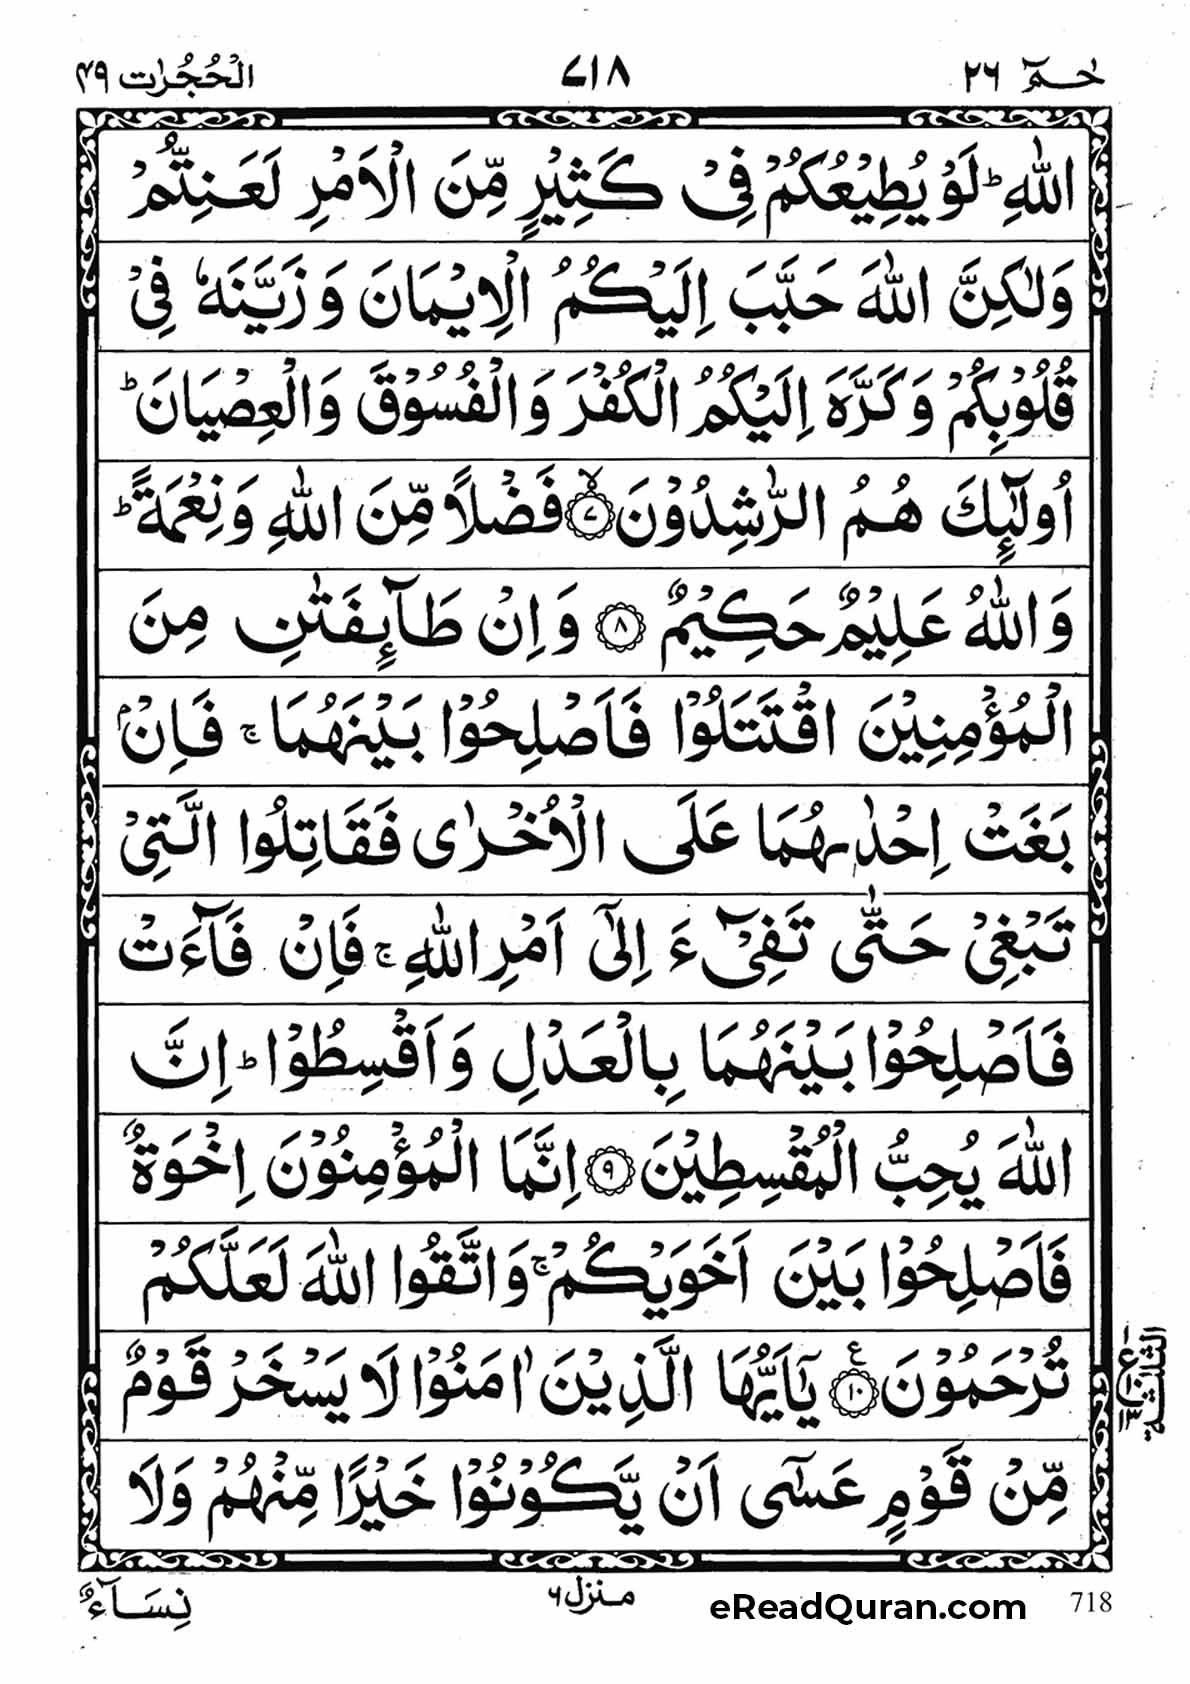 حٰمٓ ٢٦
٧١٨
الْحُجُرٰت ٤٩
اللّٰهِ ؕ لَوْ يُطِيْعُكُمْ فِىْ كَثِيْرٍ مِّنَ الْاَمْرِ لَعَنِتُّمْ
وَلٰكِنَّ اللّٰهَ حَبَّبَ اِلَيْكُمُ الْاِيْمَانَ وَ زَيَّنَهٗ فِىْ
قُلُوْبِكُمْ وَ كَرَّهَ اِلَيْكُمُ الْكُفْرَ وَالْفُسُوْقَ وَالْعِصْيَانَ ؕ
اُولٰٓئِكَ هُمُ الرّٰشِدُوْنَ ۙ‏﴿٧﴾ فَضْلًا مِّنَ اللّٰهِ وَنِعْمَةً ؕ
وَاللّٰهُ عَلِيْمٌ حَكِيْمٌ ﴿٨﴾ وَاِنْ طَآئِفَتٰنِ مِنَ
الْمُؤْمِنِيْنَ اقْتَتَلُوْا فَاَصْلِحُوْا بَيْنَهُمَا ۚ فَاِنْۢ
بَغَتْ اِحْدٰىهُمَا عَلَى الْاُخْرٰى فَقَاتِلُوا الَّتِىْ
تَبْغِىْ حَتّٰى تَفِىْٓءَ اِلٰٓى اَمْرِ اللّٰهِ ۚ فَاِنْ فَآءَتْ
فَاَصْلِحُوْا بَيْنَهُمَا بِالْعَدْلِ وَاَقْسِطُوْا ؕ اِنَّ
اللّٰهَ يُحِبُّ الْمُقْسِطِيْنَ ﴿٩﴾ اِنَّمَا الْمُؤْمِنُوْنَ اِخْوَةٌ
فَاَصْلِحُوْا بَيْنَ اَخَوَيْكُمْ ۚ وَاتَّقُوا اللّٰهَ لَعَلَّكُمْ
تُرْحَمُوْنَ ﴿١٠﴾ ع يٰۤاَيُّهَا الَّذِيْنَ اٰمَنُوْا لَا يَسْخَرْ قَوْمٌ
مِّنْ قَوْمٍ عَسٰٓى اَنْ يَّكُوْنُوْا خَيْرًا مِّنْهُمْ وَلَا
الثلثة
نِسَآءٌ
منزل ٦
eReadQuran.com
718